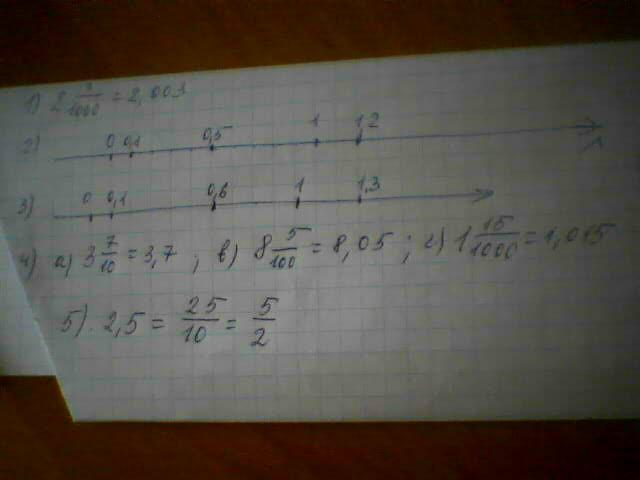 1) 2 3/1000 = 2,003
2) 0 0,1 0,5 1 1,2
3) 0 0,1 0,6 1 1,3
4) а) 3 7/10 = 3,7 ; в) 8 5/100 = 8,05 ; с) 1 15/1000 = 1,015
5). 2,5 = 25/10 = 5/2